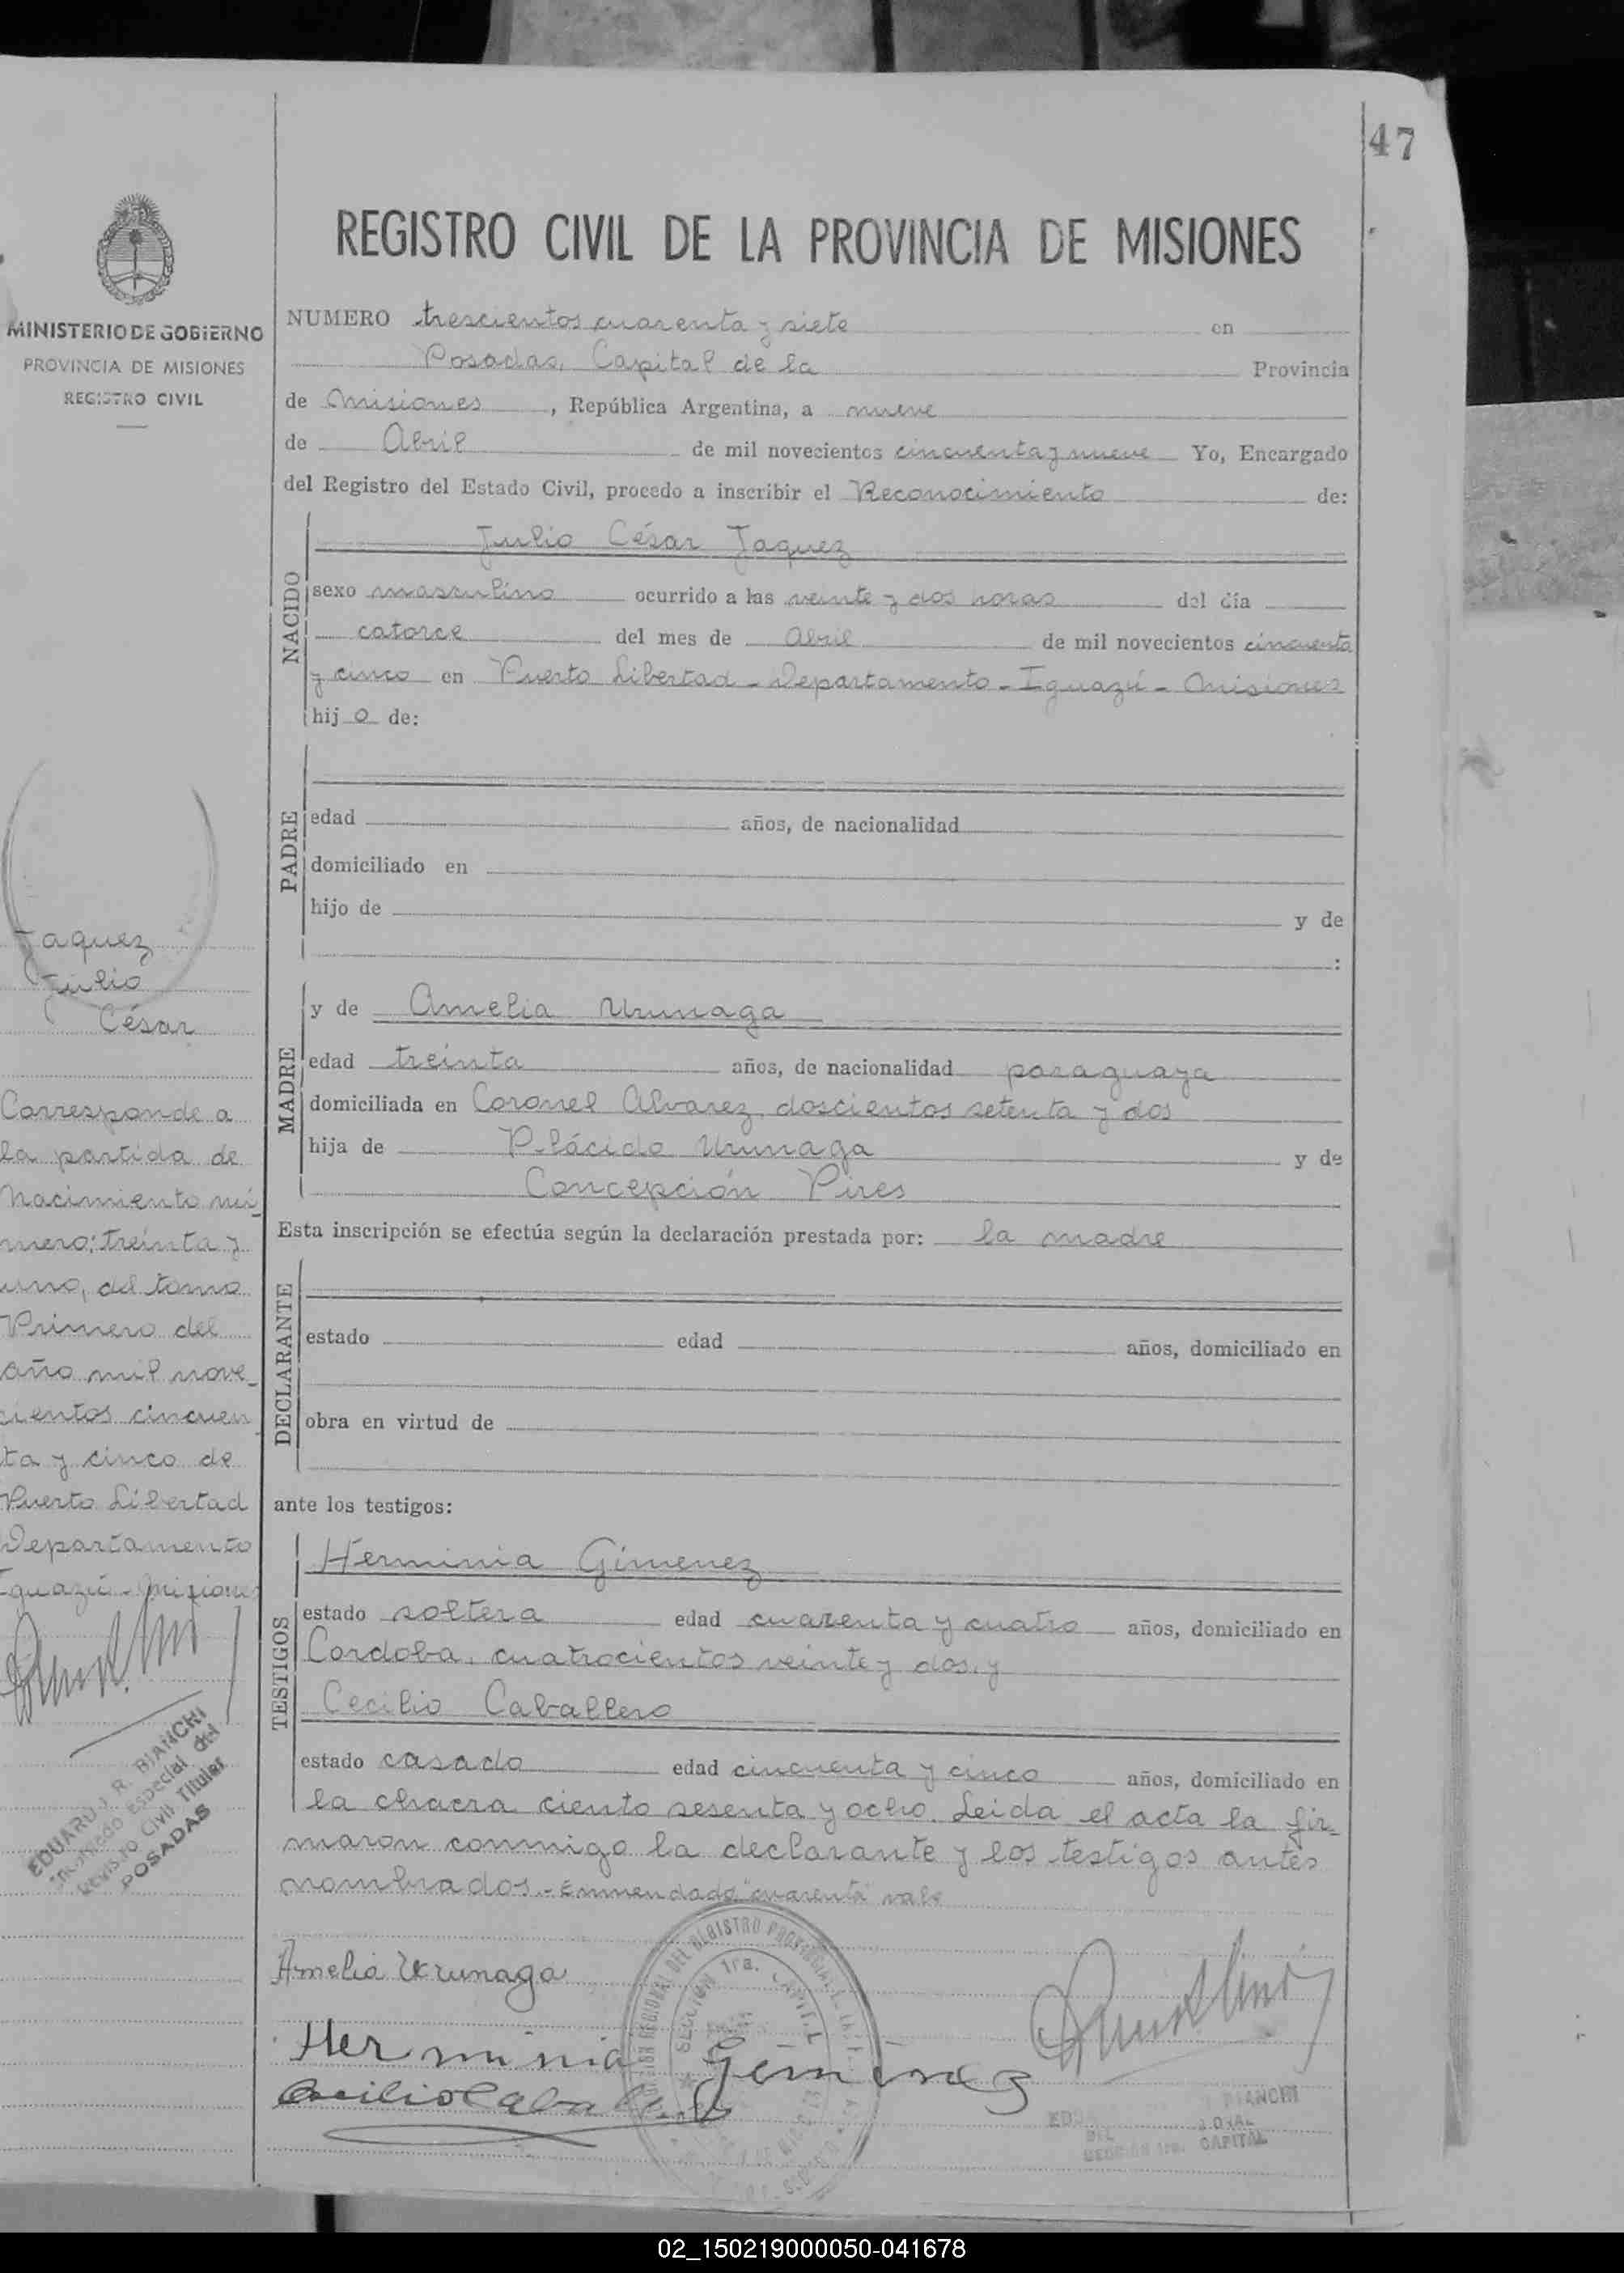 47
REGISTRO CIVIL DE LA PROVINCIA DE MISIONES
MINISTERIO DE GOBIERNO
PROVINCIA DE MISIONES
REGISTRO CIVIL
NUMERO trescientos cuarenta y siete en
Posadas, Capital de la Provincia
de Misiones, República Argentina, a nueve
de Abril de mil novecientos cincuenta y nueve Yo, Encargado
del Registro del Estado Civil, procedo a inscribir el Reconocimiento de:
NACIDO
Julio César Jaquez
sexo masculino ocurrido a las veinte y dos horas del día
catorce del mes de Abril de mil novecientos cincuenta
y cinco en Puerto Libertad - Departamento - Iguazú - Misiones
hijo de:
PADRE
edad años, de nacionalidad
domiciliado en
hijo de y de
:
MADRE
y de Amelia Urunaga
edad treinta años, de nacionalidad paraguaya
domiciliada en Coronel Alvarez, doscientos setenta y dos
hija de Plácido Urunaga y de
Concepción Pires
Esta inscripción se efectúa según la declaración prestada por: la madre
DECLARANTE
estado edad años, domiciliado en
obra en virtud de
ante los testigos:
TESTIGOS
Herminia Gimenez
estado soltera edad cuarenta y cuatro años, domiciliado en
Cordoba, cuatrocientos veinte y dos, y
Cecilio Caballero
estado casado edad cincuenta y cinco años, domiciliado en
la chacra ciento sesenta y ocho. Leida el acta la fir-
maron conmigo la declarante y los testigos antes
nombrados.- Enmendado "cuarenta" vale
Amelia Urunaga
Herminia Gimenez
Cecilio Caballero
Jaquez
Julio
César
Corresponde a
la partida de
Nacimiento nú-
mero: treinta y
uno, del tomo
Primero del
año mil nove-
cientos cincuen
ta y cinco de
Puerto Libertad
Departamento
Iguazú - Misiones
EDUARDO R. BIANCHI
Encargado Especial del
Registro Civil Titular
POSADAS
SECCION 1ra. CAPITAL
BIANCHI
SECCION 1ra. CAPITAL
02_150219000050-041678